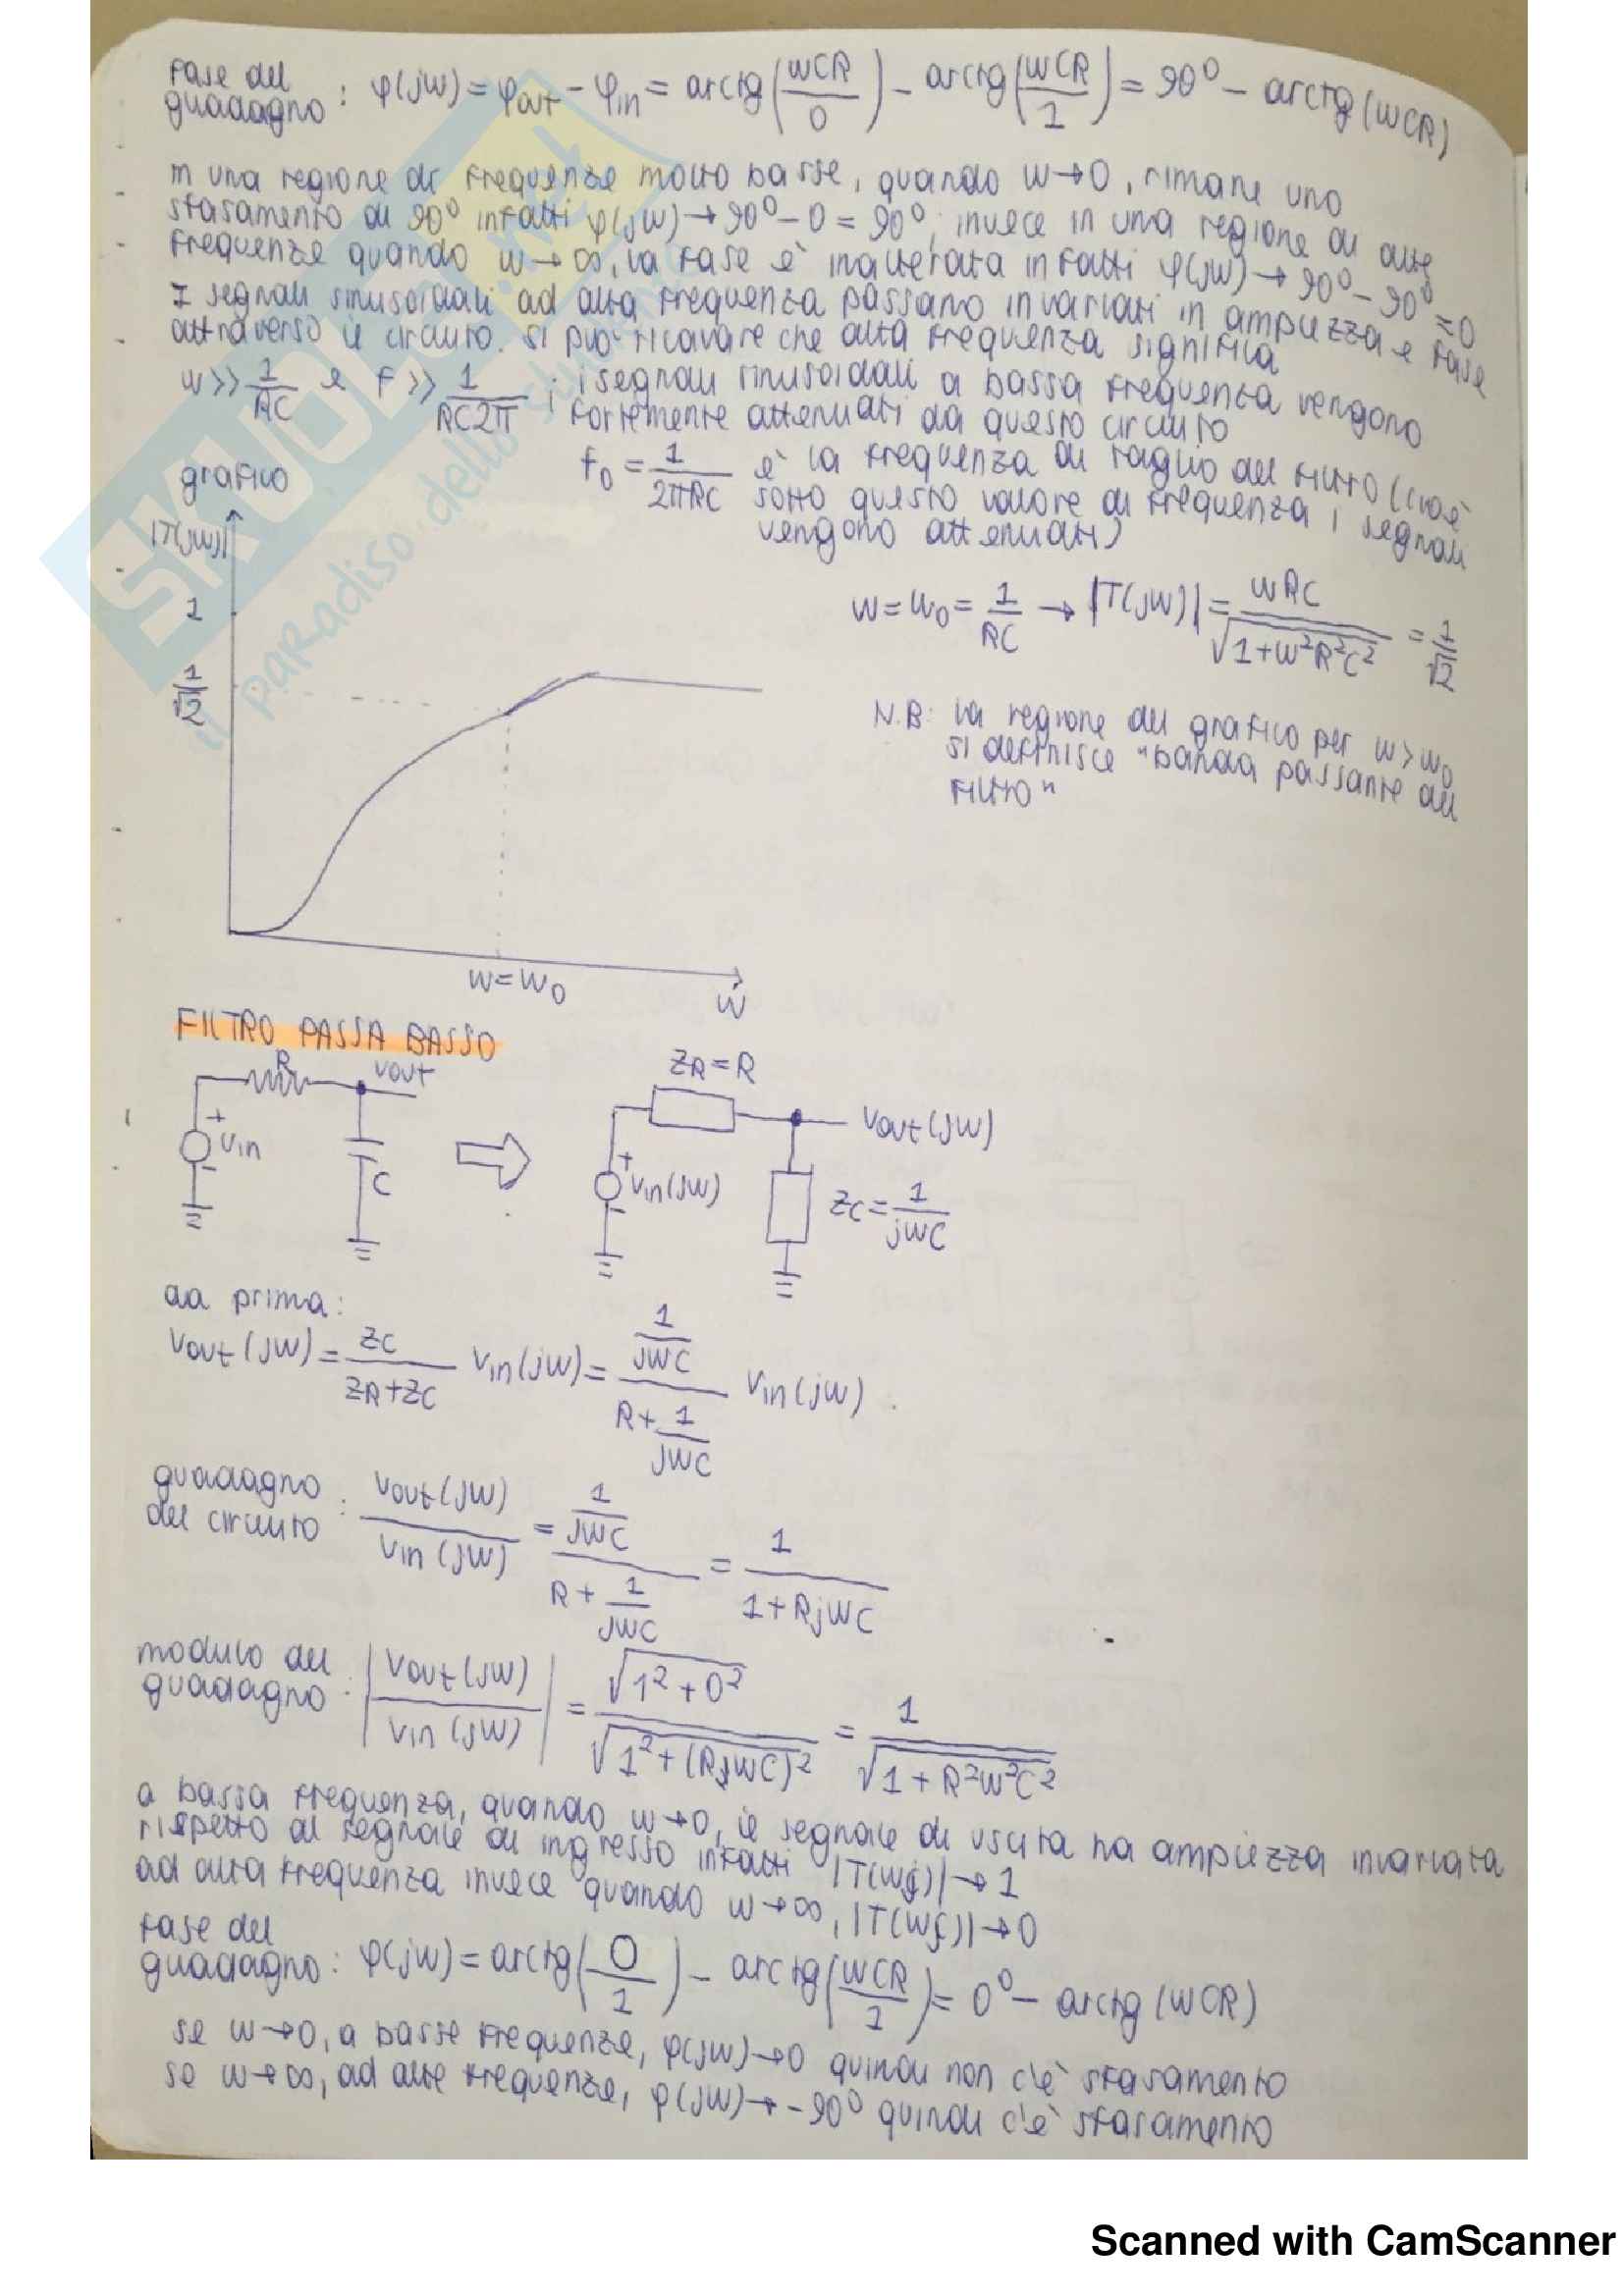 fase del
guadagno : φ(jw) = φout - φin = arctg(wCR/0) - arctg(wCR/1) = 90° - arctg(wCR)
in una regione di frequenze molto basse, quando w→0, rimane uno
sfasamento di 90° infatti φ(jw)→90°-0 = 90°; invece in una regione di alte
frequenze quando w→∞, la fase è inalterata infatti φ(jw)→90°-90°=0
I segnali sinusoidali ad alta frequenza passano invariati in ampiezza e fase
attraverso il circuito. si può ricavare che alta frequenza significa
w >> 1/RC e f >> 1/RC2π ; i segnali sinusoidali a bassa frequenza vengono
fortemente attenuati da questo circuito
f0 = 1/2πRC è la frequenza di taglio del filtro (cioè
sotto questo valore di frequenza i segnali
vengono attenuati)
grafico
|T(jw)|
1
1/√2
w = w0 = 1/RC → |T(jw)| = wRC/√1+w²R²C² = 1/√2
N.B: la regione del grafico per w>w0
si definisce "banda passante del
filtro"
w=w0
w
FILTRO PASSA BASSO
R
vout
+
vin
-
C
ZR=R
Vout(jw)
+
Vin(jw)
-
ZC = 1/jwC
da prima:
Vout(jw) = ZC/ZR+ZC Vin(jw) = 1/jwC / R+1/jwC Vin(jw)
guadagno
del circuito : Vout(jw)/Vin(jw) = 1/jwC / R+1/jwC = 1/1+RjwC
modulo del
guadagno : |Vout(jw)/Vin(jw)| = √1²+0² / √1²+(RjwC)² = 1/√1+R²w²C²
a bassa frequenza, quando w→0, il segnale di uscita ha ampiezza invariata
rispetto al segnale di ingresso infatti |T(wj)|→1
ad alta frequenza invece quando w→∞, |T(wj)|→0
fase del
guadagno : φ(jw) = arctg(0/1) - arctg(wCR/1) = 0° - arctg(wCR)
se w→0, a basse frequenze, φ(jw)→0 quindi non c'è sfasamento
se w→∞, ad alte frequenze, φ(jw)→-90° quindi c'è sfasamento
SKUOLA.net
il paradiso dello studente
Scanned with CamScanner